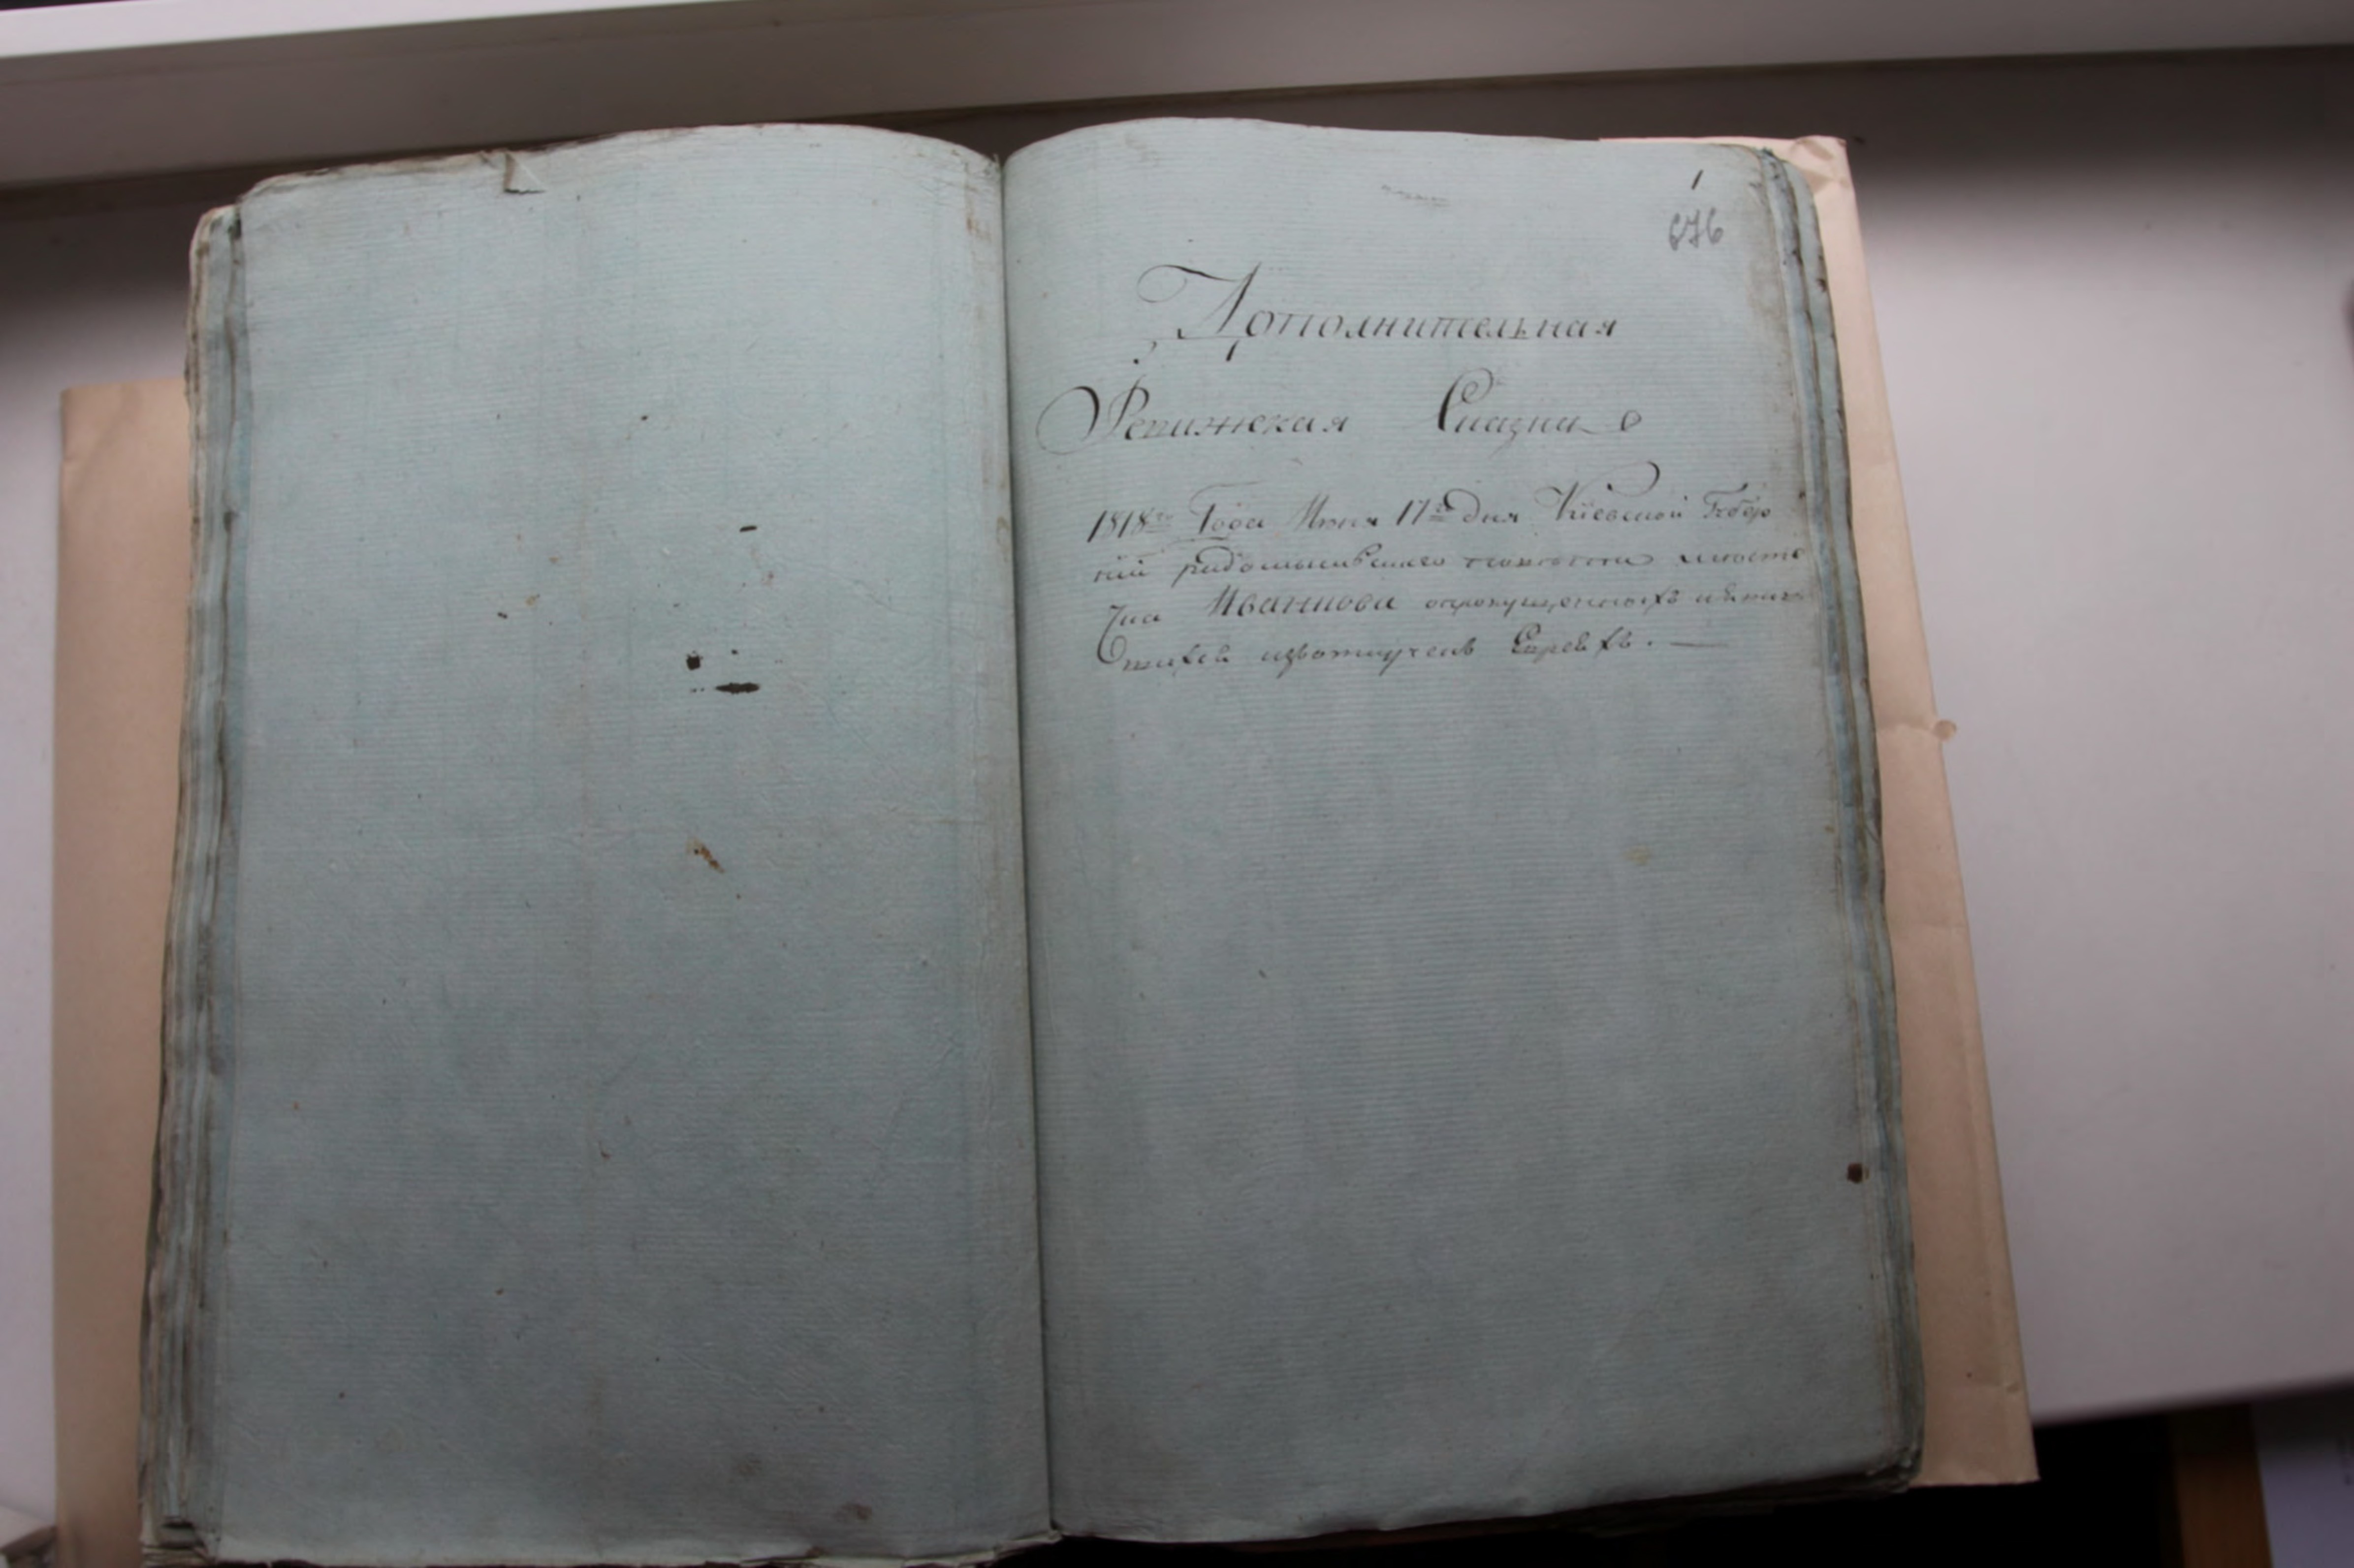 1
676
Дополнительная
Ревижская Сказка о
1818го Года Июня 17го дня Киевской Губер
нiи радомысльского повета местѣ
чка Иванкова опропущенныхъ
Еврей хъ. —